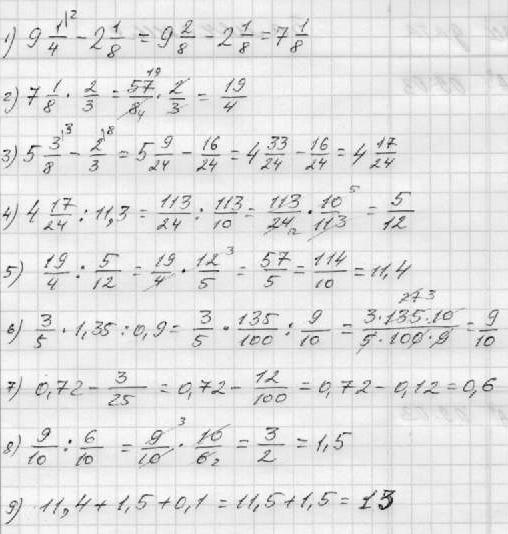 1) 9 1/4 |2 - 2 1/8 = 9 2/8 - 2 1/8 = 7 1/8
2) 7 1/8 · 2/3 = 57 19/8 4 · 2/3 = 19/4
3) 5 3/8 |3 - 2/3 |8 = 5 9/24 - 16/24 = 4 33/24 - 16/24 = 4 17/24
4) 4 17/24 : 11,3 = 113/24 : 113/10 = 113/24 2 · 10 5/113 = 5/12
5) 19/4 : 5/12 = 19/4 · 12 3/5 = 57/5 = 114/10 = 11,4
6) 3/5 · 1,35 : 0,9 = 3/5 · 135/100 : 9/10 = 3·135 27 3·10/5·100·9 = 9/10
7) 0,72 - 3/25 = 0,72 - 12/100 = 0,72 - 0,12 = 0,6
8) 9/10 : 6/10 = 9 3/10 · 10/6 2 = 3/2 = 1,5
9) 11,4 + 1,5 + 0,1 = 11,5 + 1,5 = 13